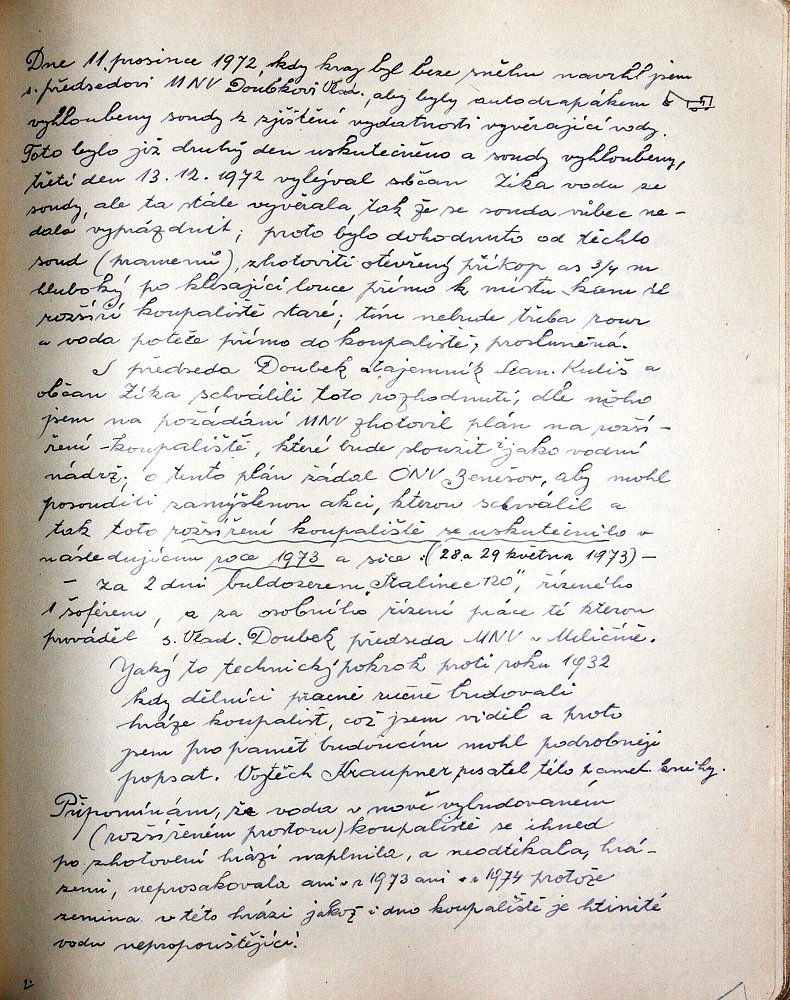 Dne 11. prosince 1972, kdy kraj byl beze sněhu navrhl jsem
s. předsedovi MNV Doubkovi Vlad., aby byly autodrapákem
vyhloubeny sondy k zjištění vydatnosti vyvěrající vody.
Toto bylo již druhý den uskutečněno a sondy vyhloubeny,
třetí den 13.12.1972 vyléval občan Zíka vodu ze
sondy, ale ta stále vyvěrala, tak že se sonda vůbec ne-
dala vyprázdnit; proto bylo dohodnuto od těchto
sond (pramenů), zhotoviti otevřený příkop as 3/4 m
hluboký po klesající louce přímo k místu kam se
rozšíří koupaliště staré; tím nebude třeba rour
a voda poteče přímo do koupaliště, prosluněná.
S předseda Doubek a tajemník Stan. Kuliš a
občan Zíka schválili toto rozhodnutí, dle něho
jsem na požádání MNV zhotovil plán na rozší-
ření koupaliště, které bude sloužit i jako vodní
nádrž; o tento plán žádal ONV Benešov, aby mohl
posouditi zamýšlenou akci, kterou schválil a
tak toto rozšíření koupaliště se uskutečnilo v
následujícím roce 1973 a sice: (28. a 29 května 1973) -
- za 2 dni buldozerem „Stalinec 120", řízeného
1 šoférem, a za osobního řízení práce té kterou
prováděl s. Vlad. Doubek předseda MNV v Miličíně.
Jaký to technický pokrok proti roku 1932
kdy dělníci pracně ručně budovali
hráze koupališť, což jsem viděl a proto
jsem pro paměť budoucím mohl podrobněji
popsat. Vojtěch Kraupner pisatel této pamět. knihy.
Připomínám, že voda v nově vybudovaném
(rozšířeném prostoru) koupaliště se ihned
po zhotovení hrází naplnila, a neodtékala, hrá-
zemi, neprosakovala ani v r 1973 ani v r 1974 protože
zemina v této hrázi jakož i dno koupaliště je hlinité
vodu nepropouštějící.